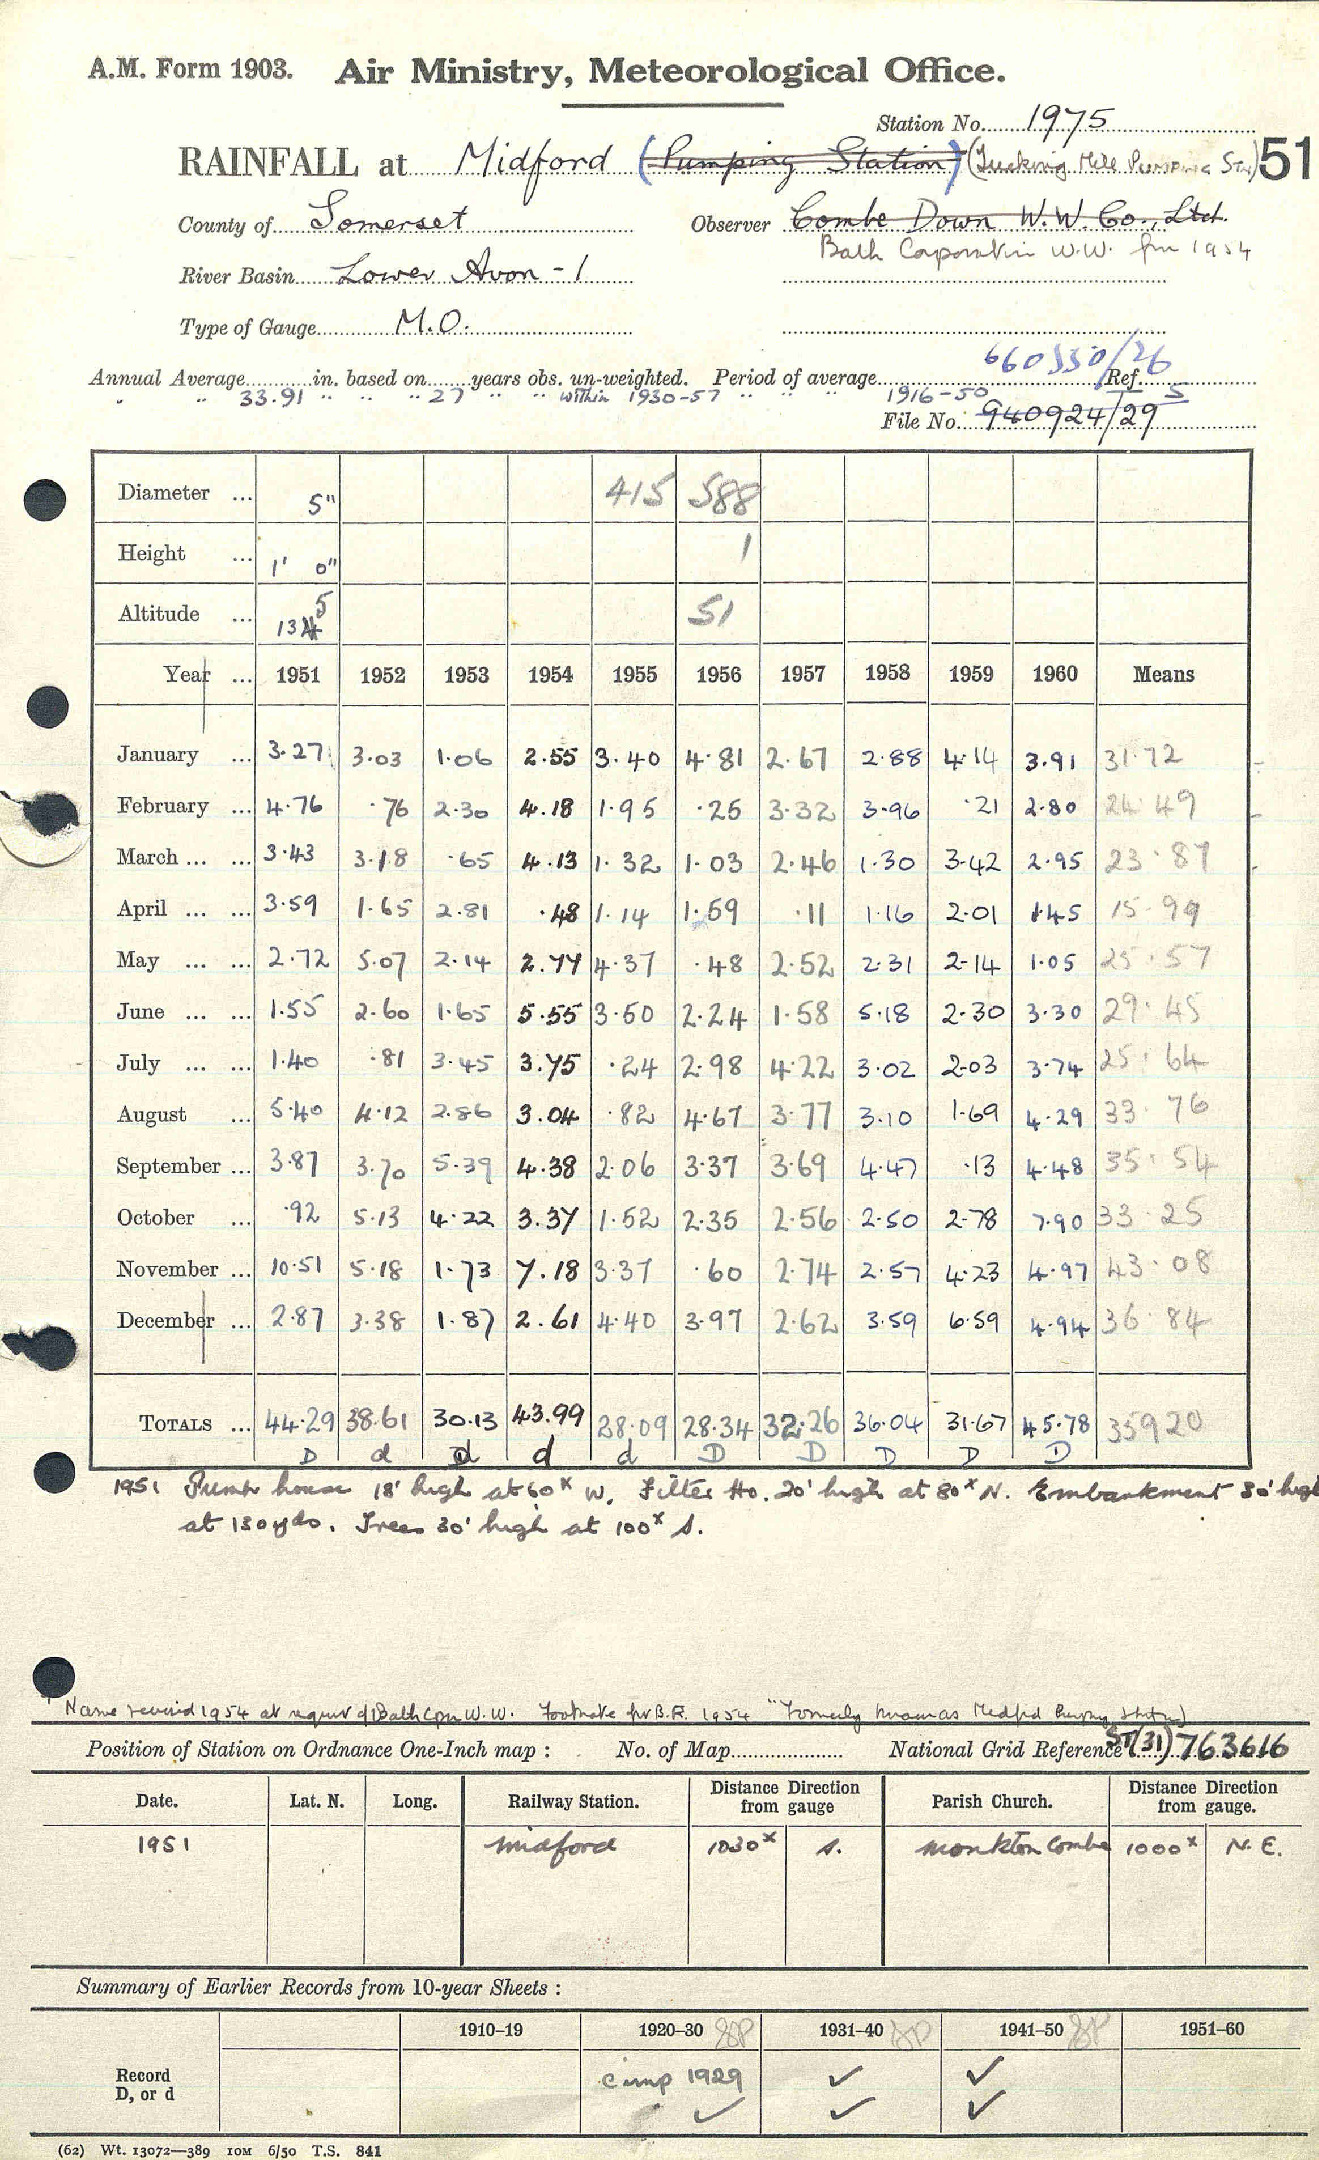 A.M. Form 1903. Air Ministry, Meteorological Office.
Station No. 1975
RAINFALL at Midford (Pumping Station) (Tucking Mill Pumping Stn) 51
County of Somerset Observer Combe Down W.W. Co., Ltd.
Bath Corporation W.W. fm 1954
River Basin Lower Avon - 1
Type of Gauge M.O.
660550/26
Annual Average in. based on years obs. un-weighted. Period of average Ref.
" " 33.91 " " " 27 " " within 1930-57 " " " 1916-50
File No. 940924/29
Diameter ... 5" 415 588
Height ... 1' 0" 1
Altitude ... 134 5 51
Year ... 1951 1952 1953 1954 1955 1956 1957 1958 1959 1960 Means
January ... 3.27 3.03 1.06 2.55 3.40 4.81 2.67 2.88 4.14 3.91 31.72
February ... 4.76 .76 2.30 4.18 1.95 .25 3.32 3.96 .21 2.80 24.49
March ... ... 3.43 3.18 .65 4.13 1.32 1.03 2.46 1.30 3.42 2.95 23.87
April ... ... 3.59 1.65 2.81 .48 1.14 1.59 .11 1.16 2.01 1.45 15.99
May ... ... 2.72 5.07 2.14 2.77 4.37 .48 2.52 2.31 2.14 1.05 25.57
June ... ... 1.55 2.60 1.65 5.55 3.50 2.24 1.58 5.18 2.30 3.30 29.45
July ... ... 1.40 .81 3.45 3.75 .24 2.98 4.22 3.02 2.03 3.74 25.64
August ... 5.40 4.12 2.86 3.04 .82 4.67 3.77 3.10 1.69 4.29 33.76
September ... 3.87 3.70 5.39 4.38 2.06 3.37 3.69 4.47 .13 4.48 35.54
October ... .92 5.13 4.22 3.37 1.52 2.35 2.56 2.50 2.78 7.90 33.25
November ... 10.51 5.18 1.73 7.18 3.37 .60 2.74 2.57 4.23 4.97 43.08
December ... 2.87 3.38 1.87 2.61 4.40 3.97 2.62 3.59 6.59 4.94 36.84
TOTALS ... 44.29 38.61 30.13 43.99 28.09 28.34 32.26 36.04 31.67 45.78 35920
D d d d d D D D D D
1951 Pump house 18' high at 60x W. Filter Ho. 20' high at 80x N. Embankment 30' high
at 130 yds. Trees 30' high at 100x S.
Name revised 1954 at request of Bath Cpn W.W. Footnote for B.R. 1954 "Formerly known as Midford Pumping Station)
Position of Station on Ordnance One-Inch map : No. of Map National Grid Reference ST(31) 763616
Date. Lat. N. Long. Railway Station. Distance Direction from gauge Parish Church. Distance Direction from gauge.
1951 Midford 1030x S. Monkton Combe 1000x N.E.
Summary of Earlier Records from 10-year Sheets :
1910–19 1920–30 1931–40 1941–50 1951–60
Record D, or d comp 1929 ✓ ✓
✓ ✓ ✓
(62) Wt. 13072—389 10M 6/50 T.S. 841